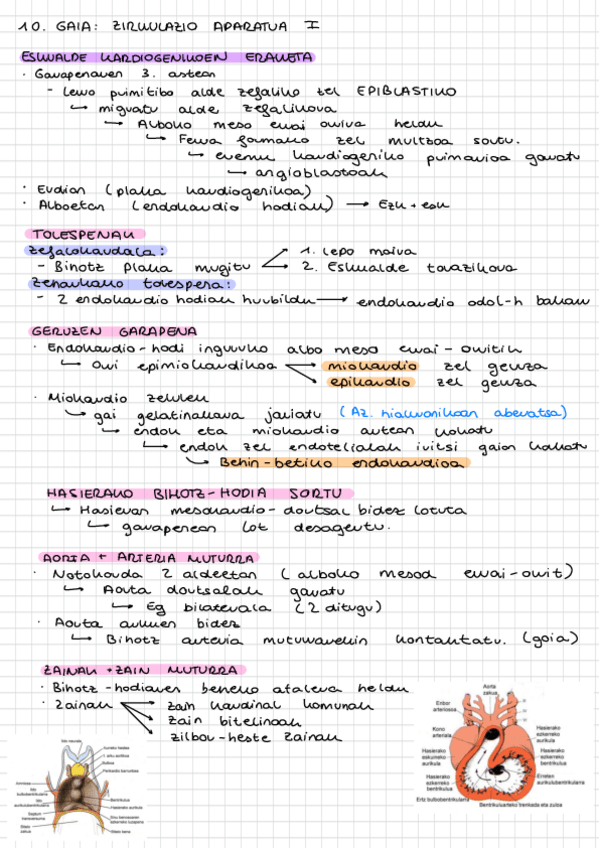 10. GAIA: ZIRKULAZIO APARATUA I
ESKUALDE KARDIOGENIKOEN ERAKETA
· Garapenaren 3. astean
- Lerro primitibo alde zefaliko zel EPIBLASTIKO
↳ migratu alde zefalikora
↳ Alboko meso erai orrira heldu
↳ Ferra formako zel multzoa sortu.
↳ eremu kardiogeniko primarioa garatu
↳ angioblastoak
· Erdian (plaka kardiogenikoa)
· Alboetan (endokardio hodiak) → Ezk + esk
TOLESPENAK
Zefalokaudala:
- Bihotz plaka mugitu
1. lepo maira
2. Eskualde torazikora
Zeharkako tolespena:
- 2 endokardio hodiak hurbildu → endokardio odol-h bakarr
GERUZEN GARAPENA
· Endokardio-hodi inguruko albo meso errai-orritik
↳ Orri epimiokardikoa
miokardio zel geruza
epikardio zel geruza
· Miokardio zelulek
↳ gai gelatinakara jariatu (Az. hialuronikoan aberatsa)
↳ endok eta miokardio artean kokatu
↳ endok zel endotelialak iritsi gaion kokatu
↳ Behin-betiko endokardioa
HASIERAKO BIHOTZ-HODIA SORTU
↳ Hasieran mesokardio-dortsal bidez lotuta
↳ garapenean lot desagertu.
AORTA + ARTERIA MUTURRA
· Notokorda 2 aldeetan (alboko mesod errai-orrit)
↳ Aorta dortsalak garatu
↳ Eg bilaterala (2 ditugu)
· Aorta arkuen bidez
↳ Bihotz arteria muturrarekin kontaktatu. (goia)
ZAINAK + ZAIN MUTURRA
· Bihotz-hodiaren beheko atalera heldu
· Zainak
zain kardinal komunak
zain bitelinoak
zilbor-heste zainak
Aorta zakua
Enbor arteriosoa
Kono arteriala
Hasierako ezkerreko aurikula
Hasierako eskuineko aurikula
Hasierako ezkerreko bentrikulua
Hasierako ezkerreko bentrikulua
Erreten aurikulubentrikularra
Ertz bulbobentrikularra
Bentrikuluarteko trenkada eta zuloa